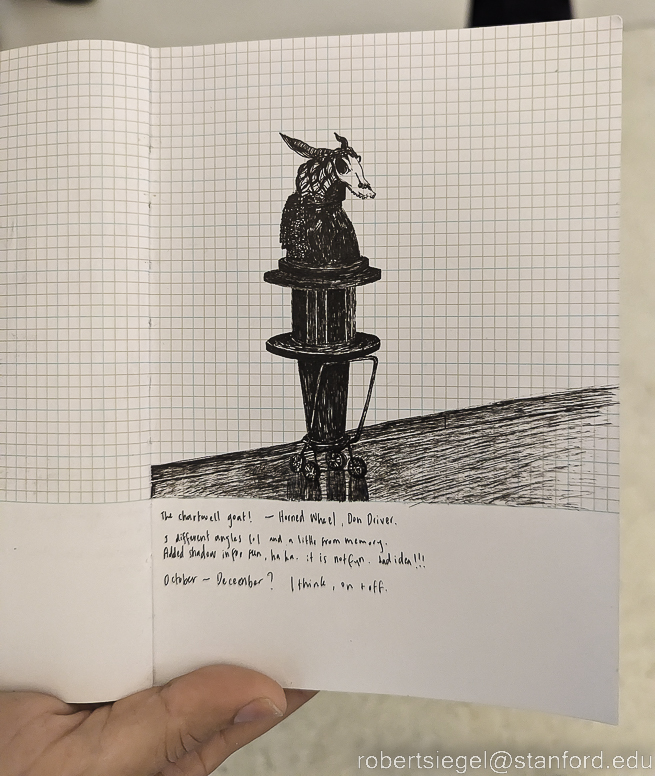 The chartwell goat! — Horned Wheel, Don Driver.
3 different angles lol and a little from memory.
Added shadow in for fun, ha ha. it is not fun. bad idea!!!
October — December? I think, on + off.
robertsiegel@stanford.edu